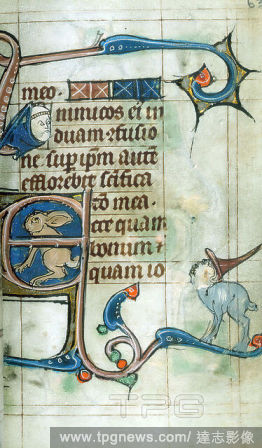 63
meo.
inimicos ei in
duam ɔfusio
ne sup ipm autē
efflorebit sctifica
tio mea.
cce quam
bonum ⁊
quam io
TPG
www.tpgnews.com/ 達志影像